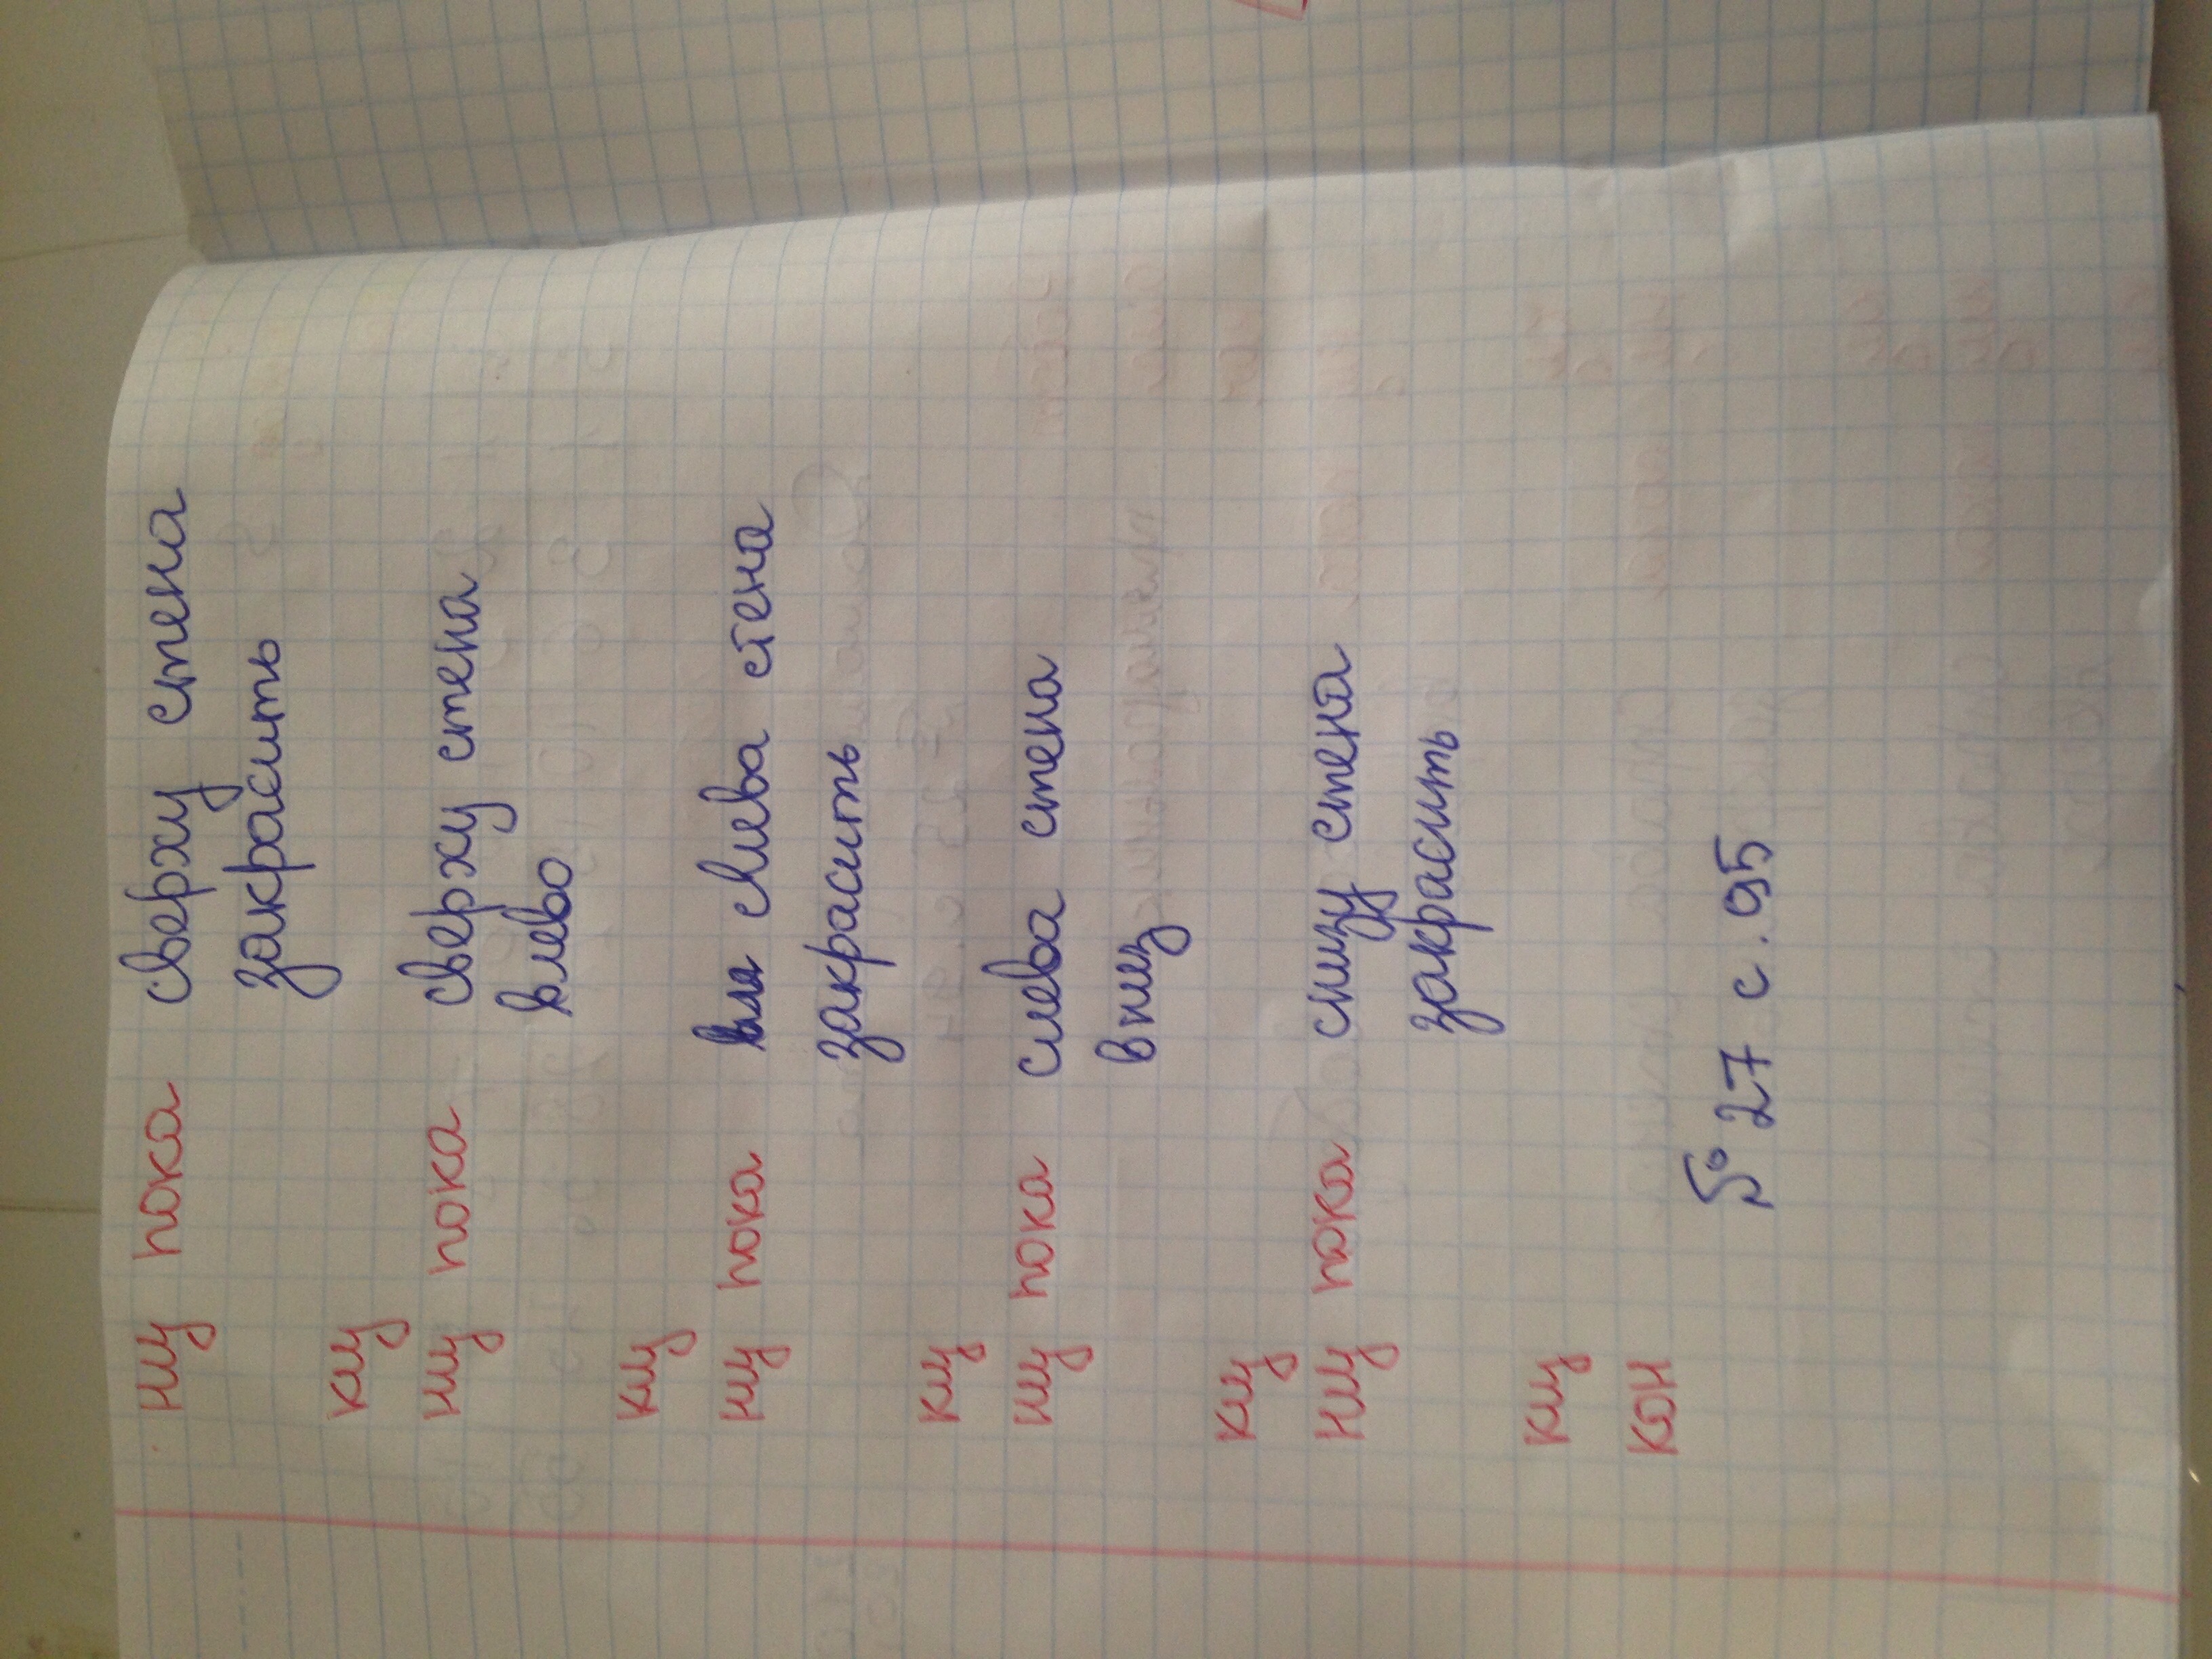 нц пока сверху стена
закрасить
кц
нц пока сверху стена
влево
кц
нц пока слева стена
закрасить
кц
нц пока слева стена
вниз
кц
нц пока снизу стена
закрасить
кц
кон
№ 27 с. 95